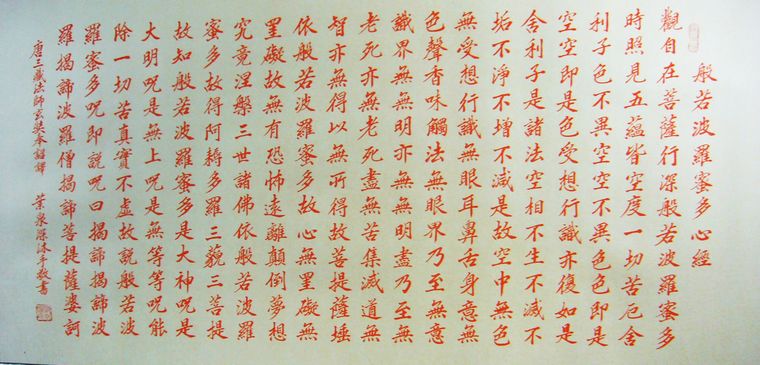 般若波羅蜜多心經
觀自在菩薩行深般若波羅蜜多
時照見五蘊皆空度一切苦厄舍
利子色不異空空不異色色即是
空空即是色受想行識亦復如是
舍利子是諸法空相不生不滅不
垢不淨不增不減是故空中無色
無受想行識無眼耳鼻舌身意無
色聲香味觸法無眼界乃至無意
識界無無明亦無無明盡乃至無
老死亦無老死盡無苦集滅道無
智亦無得以無所得故菩提薩埵
依般若波羅蜜多故心無罣礙無
罣礙故無有恐怖遠離顛倒夢想
究竟涅槃三世諸佛依般若波羅
蜜多故得阿耨多羅三藐三菩提
故知般若波羅蜜多是大神呪是
大明呪是無上呪是無等等呪能
除一切苦真實不虛故說般若波
羅蜜多呪即說呪曰揭諦揭諦波
羅揭諦波羅僧揭諦菩提薩婆訶
唐三藏法師玄奘奉詔譯 葉泉沐手敬書